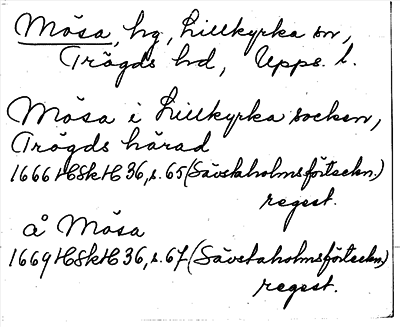 Mösa, hg, Lillkyrka sn,
Trögds hd, Upps. l.
Mösa i Lillkyrka socken,
Trögds härad
1666 HSkH 36, s. 65 (Sävstaholmsförteckn.)
regest.
å Mösa
1669 HSkH 36, s. 67 (Sävstaholmsförteckn.)
regest.